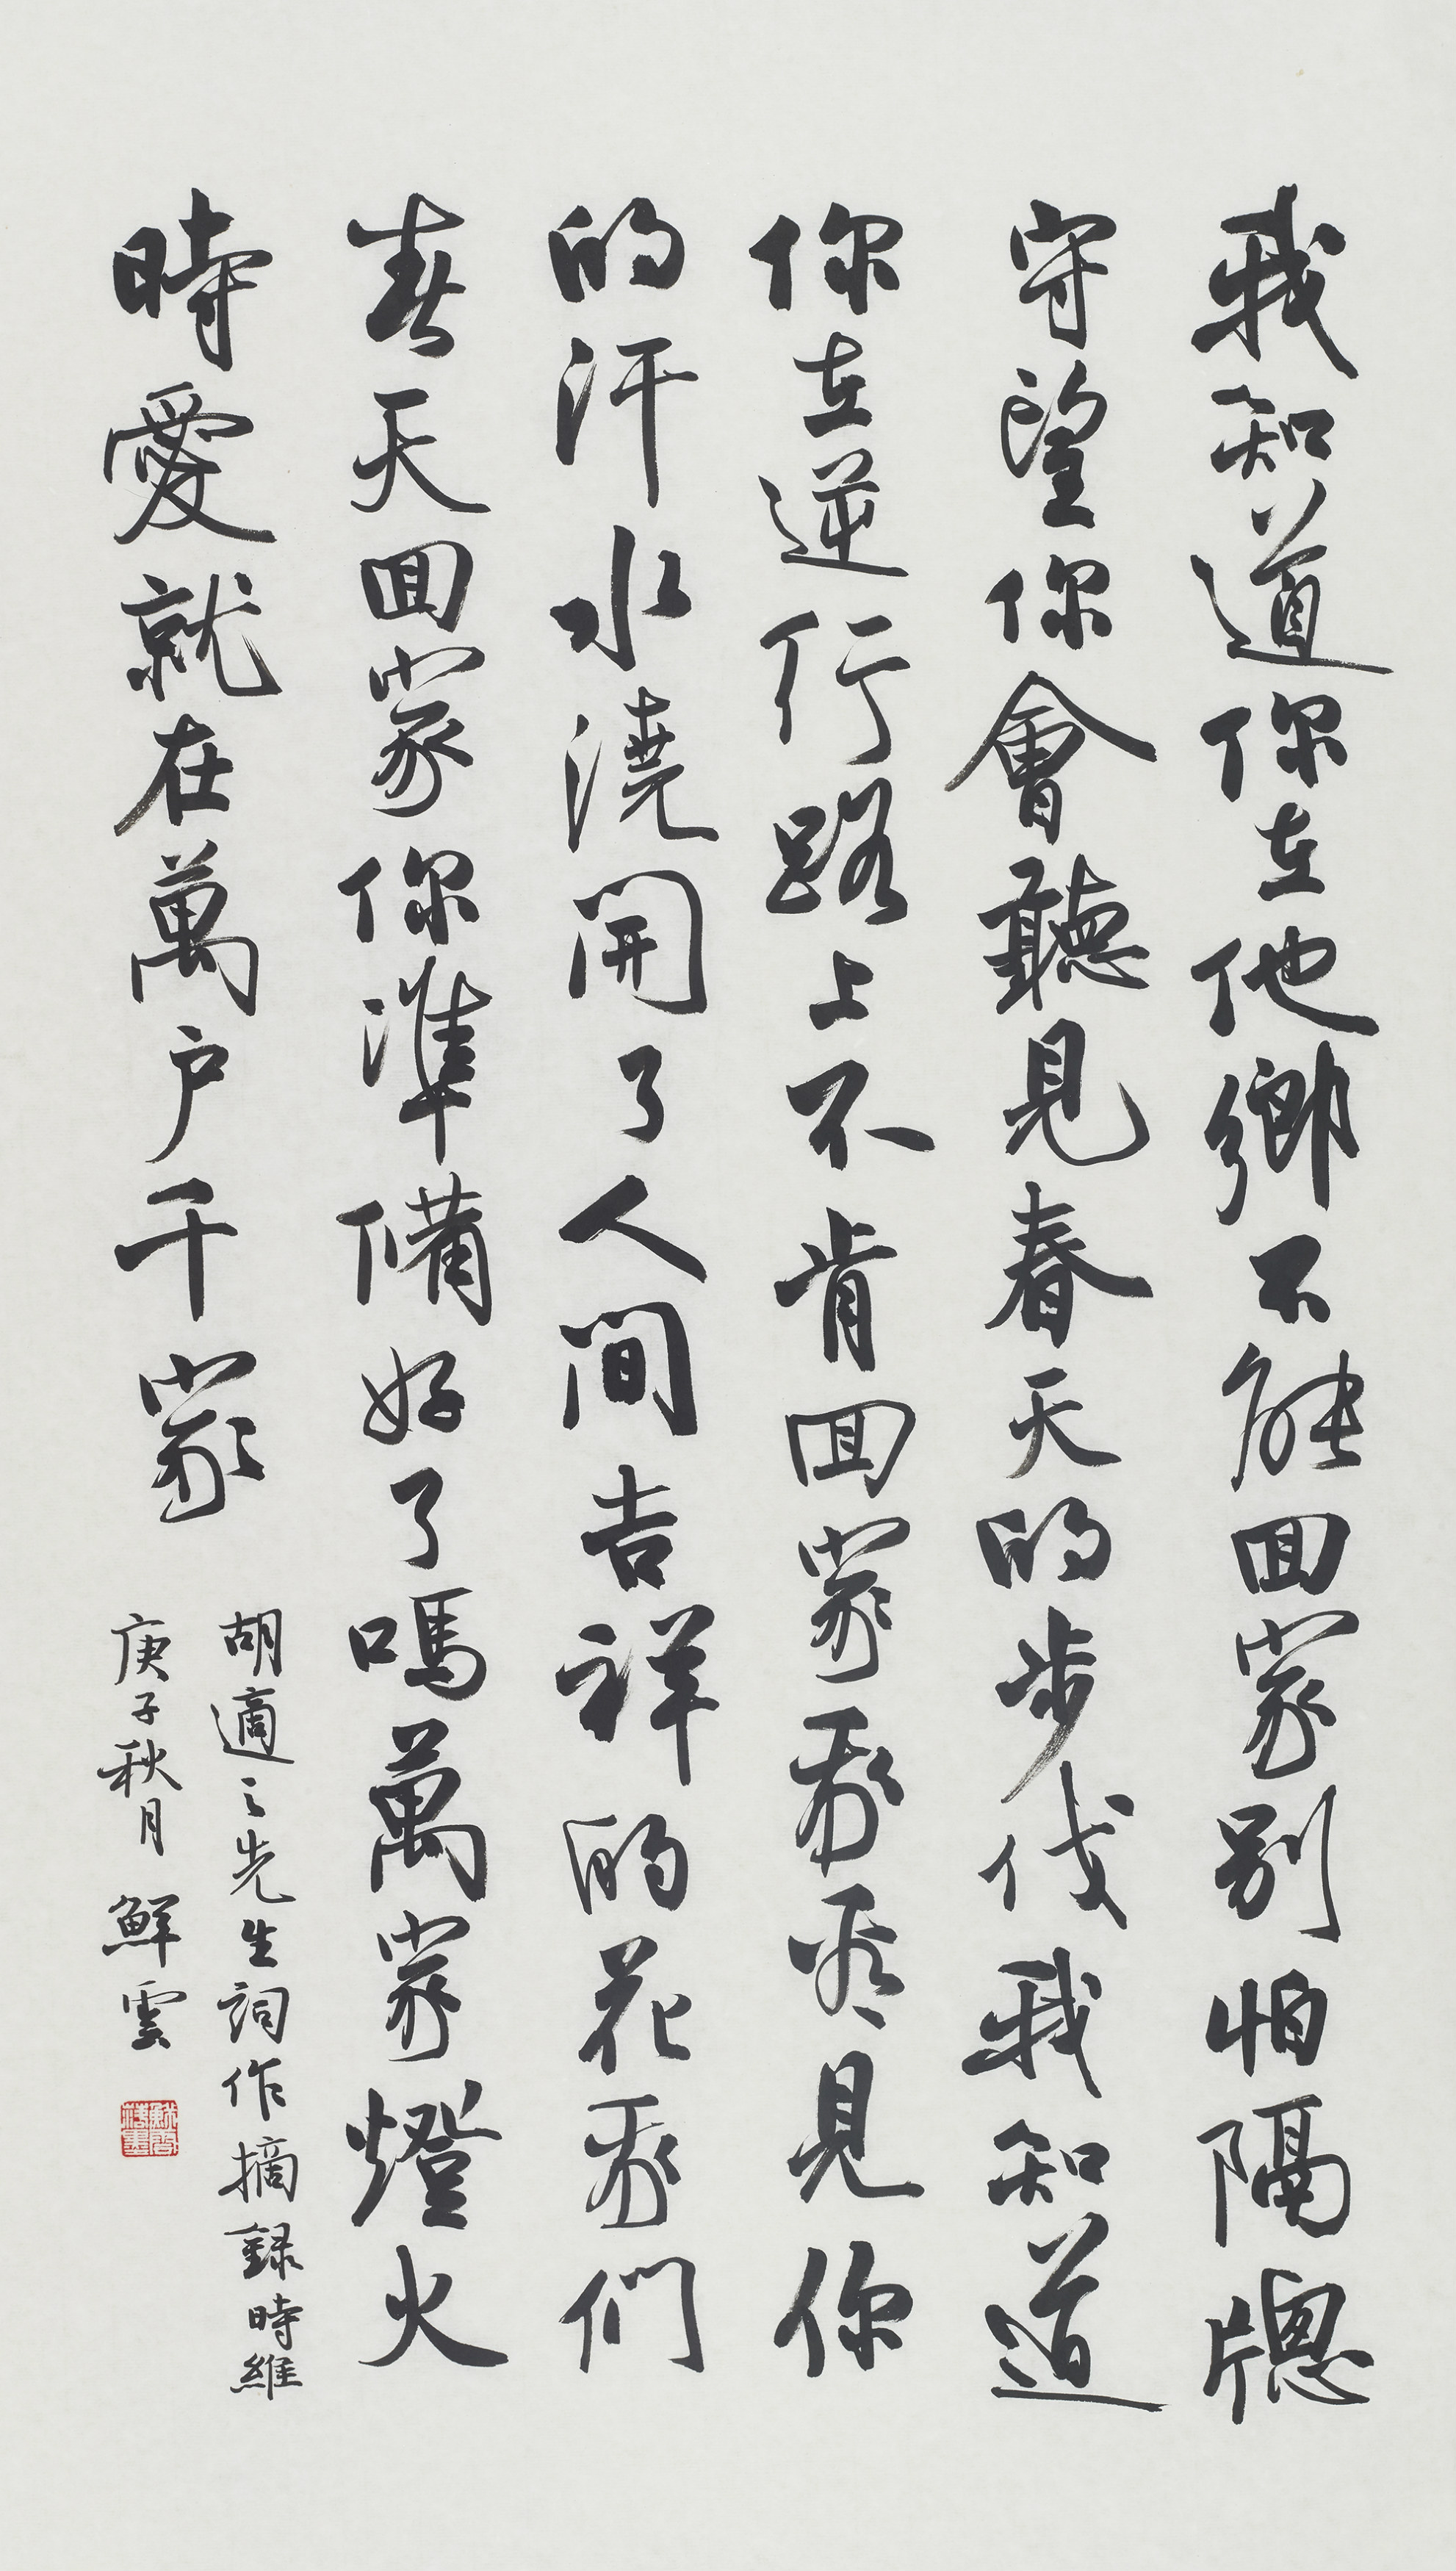 我知道你在他鄉不能回家別怕隔牕
守望你會聽見春天的步伐我知道
你在逆行路上不肯回家我看見你
的汗水澆開了人間吉祥的花我們
春天回家你準備好了嗎萬家燈火
時愛就在萬户千家
胡適之先生詞作摘録時維
庚子秋月 鮮雲